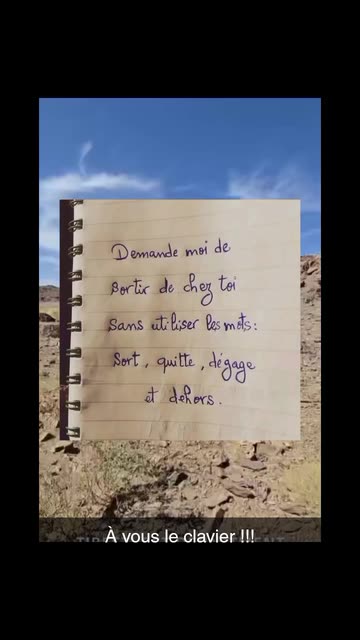 Demande moi de
sortir de chez toi
sans utiliser les mots:
Sort, quitte, dégage
et dehors.
À vous le clavier !!!